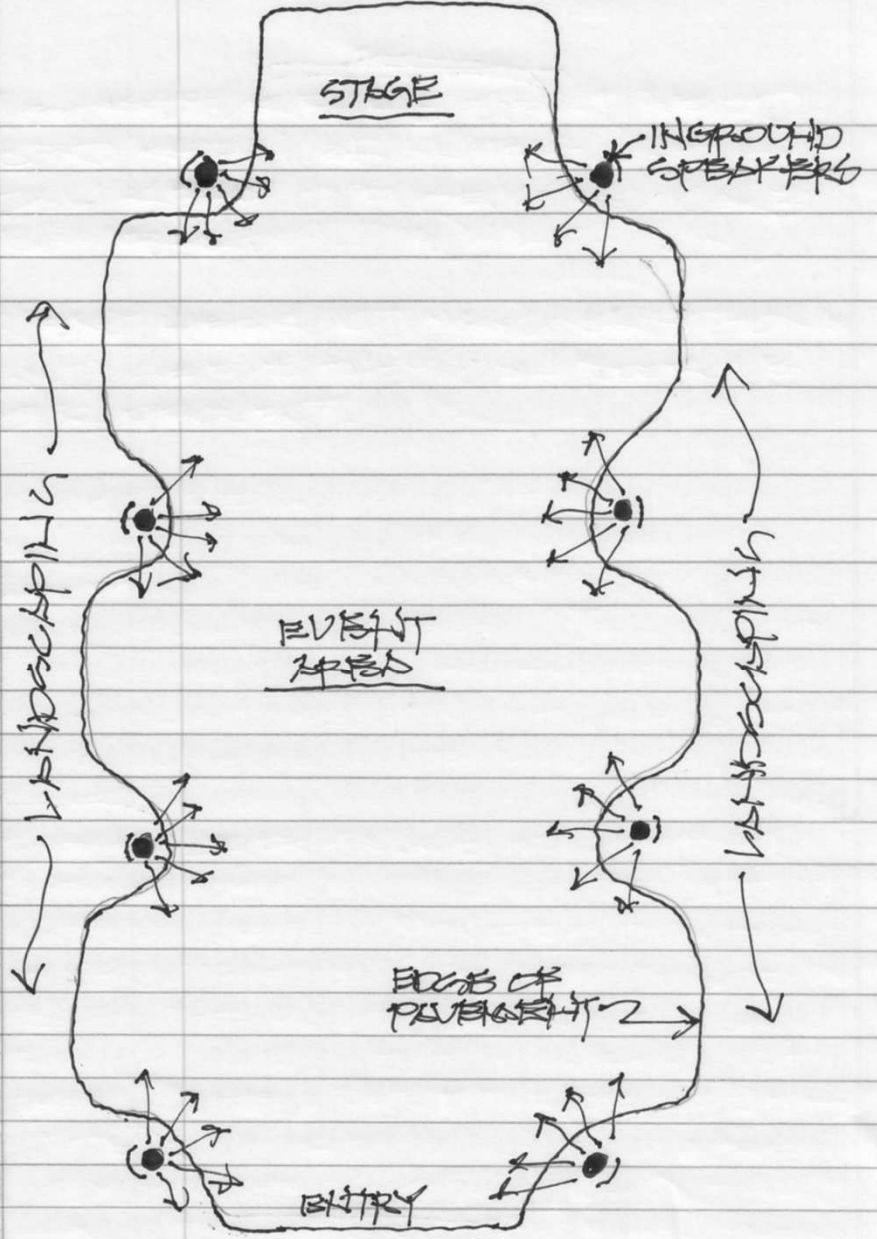 STAGE
INGROUND
SPEAKERS
LANDSCAPING
LANDSCAPING
EVENT
AREA
EDGE OF
PAVEMENT
ENTRY